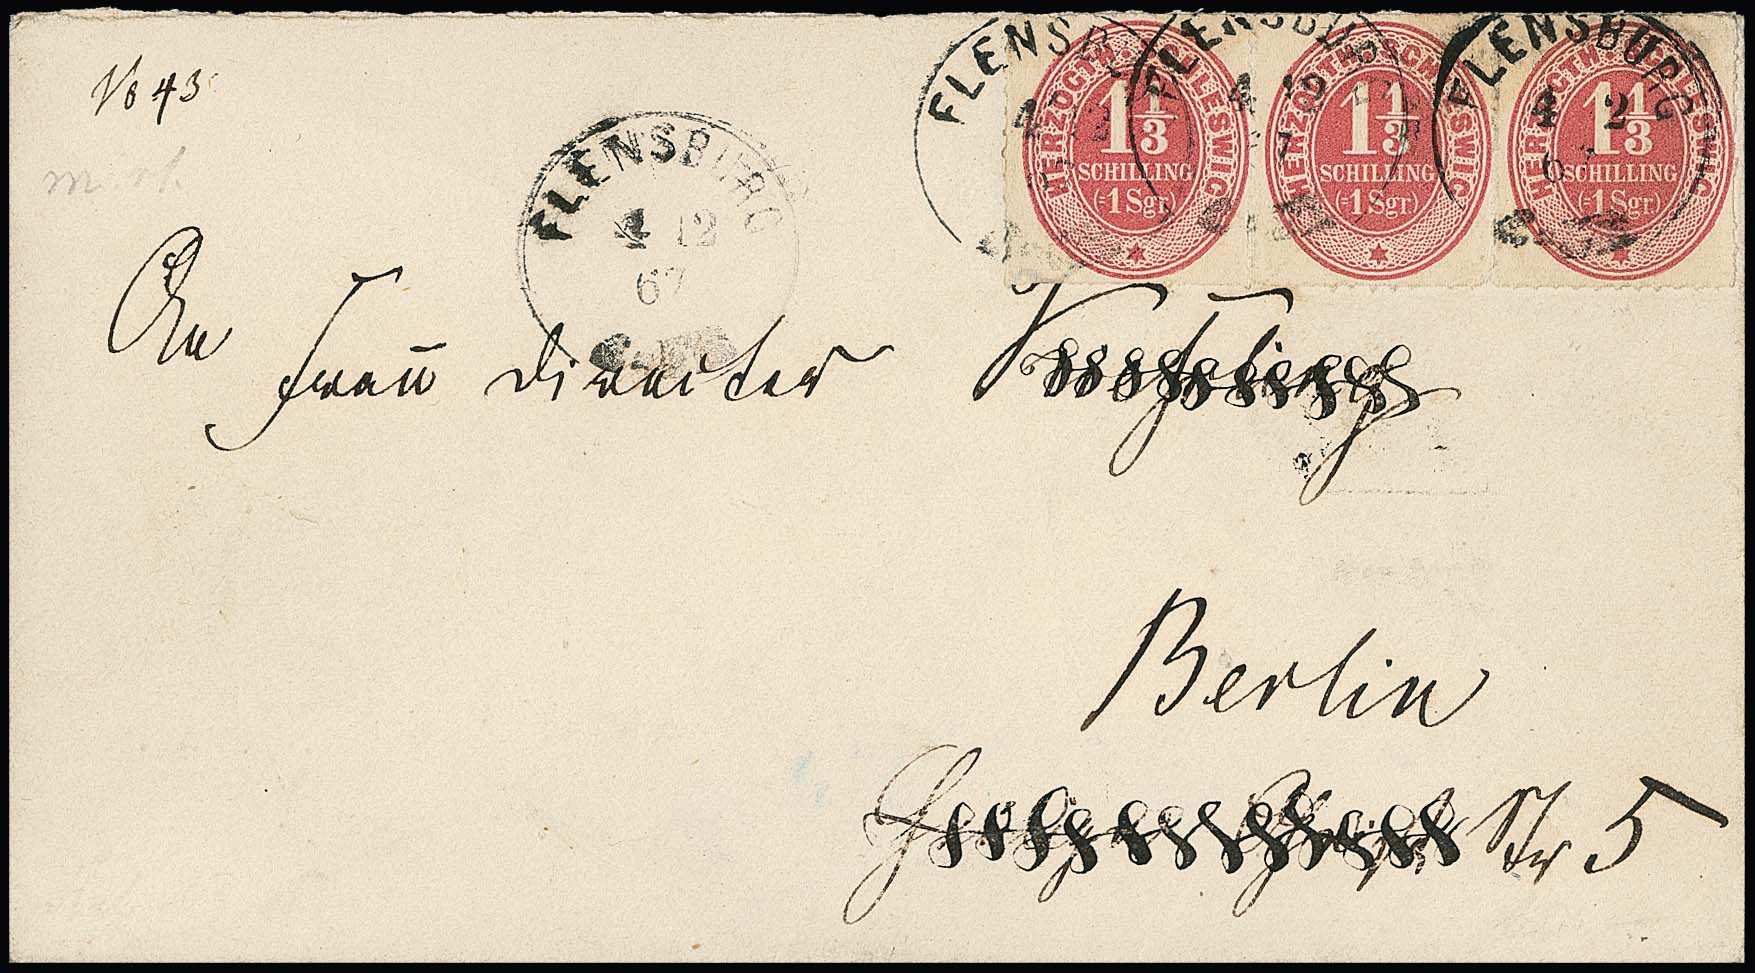 No 43
FLENSBURG
4 12
67
FLENSB
FLENSBURG
4 12
67
FLENSBURG
4 2
67
HERZOGTH. SCHLESWIG
1 1/3
SCHILLING
(=1 Sgr.)
HERZOGTH. SCHLESWIG
1 1/3
SCHILLING
(=1 Sgr.)
HERZOGTH. SCHLESWIG
1 1/3
SCHILLING
(=1 Sgr.)
An
Frau Director
Berlin
Str 5